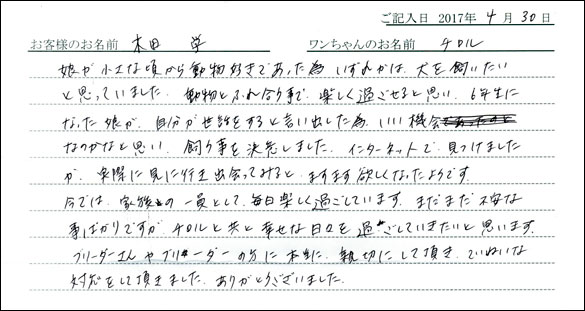 ご記入日 2017年 4月 30日
お客様のお名前 木田 学 ワンちゃんのお名前 チロル
娘が小さな頃から動物好きであった為 いずれかは、犬を飼いたい
と思っていました。動物とふれ合う事で、楽しく過ごせると思い、6年生に
なった娘が、自分が世話をすると言い出した為、いい機会
なのかなと思い、飼う事を決意しました。インターネットで、見つけました
が、実際に見に行き出会ってみると、ますます欲しくなったようです。
今では、家族の一員として、毎日楽しく過ごしています。まだまだ不安な
事ばかりですが、チロルと共に幸せな日々を過ごしていきたいと思います。
ブリーダーさんやブリーダーの方に本当に、親切にして頂き、ていねいな
対応をして頂きました。ありがとうございました。